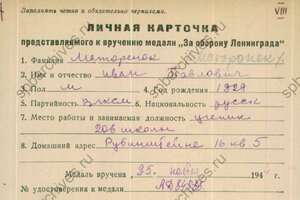 Заполнять четко и обязательно чернилами.
VIII
ЛИЧНАЯ КАРТОЧКА
представляемого к вручению медали „За оборону Ленинграда"
1. Фамилия Маторенок
2. Имя и отчество Иван Павлович
3. Пол м 4. Год рождения 1929
5. Партийность Влксм 6. Национальность русск
7. Место работы и занимаемая должность ученик
206 школы
8. Домашний адрес Рубинштейна 16 кв 5
Медаль вручена 25 194
№ удостоверения к медали
spbarchives.ru